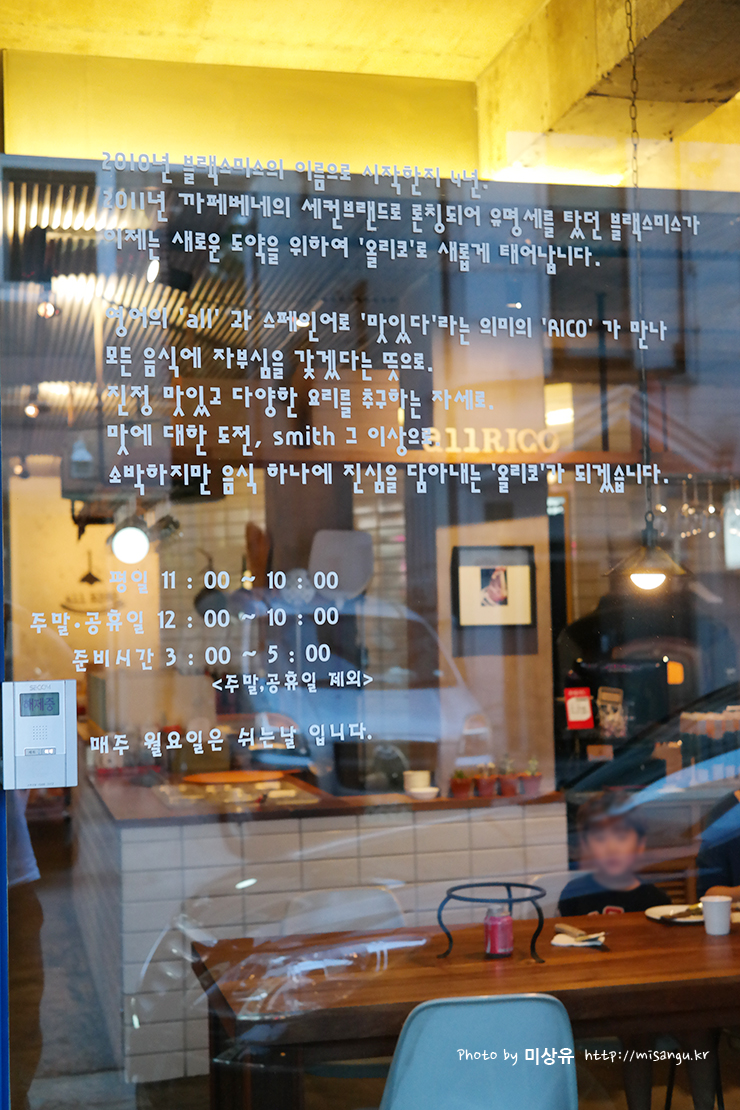 2010년 블랙스미스의 이름으로 시작한지 4년.
2011년 까페베네의 세컨브랜드로 론칭되어 유명세를 탔던 블랙스미스가
이제는 새로운 도약을 위하여 '올리코'로 새롭게 태어납니다.
영어의 'all' 과 스페인어로 '맛있다'라는 의미의 'RICO' 가 만나
모든 음식에 자부심을 갖겠다는 뜻으로.
진정 맛있고 다양한 요리를 추구하는 자세로.
맛에 대한 도전, smith 그 이상으로
소박하지만 음식 하나에 진심을 담아내는 '올리코'가 되겠습니다.
allRICO
평일 11 : 00 ~ 10 : 00
주말·공휴일 12 : 00 ~ 10 : 00
준비시간 3 : 00 ~ 5 : 00
<주말,공휴일 제외>
매주 월요일은 쉬는날 입니다.
ALL RICO
해제중
Photo by 미상유 http://misangu.kr